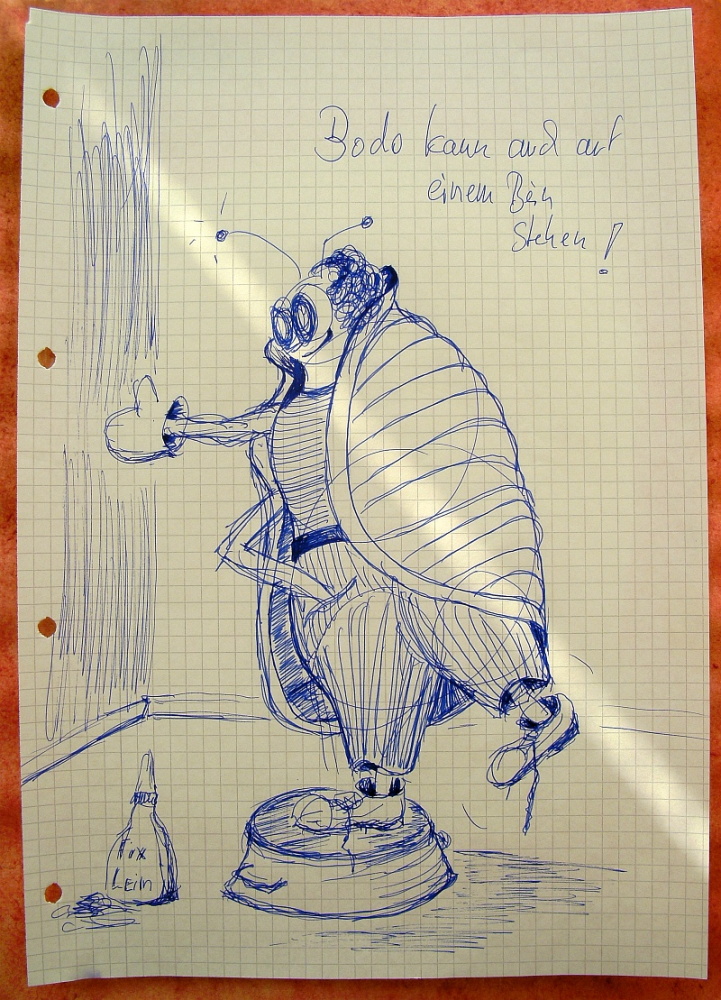 Bodo kann auch auf
einem Bein
stehen!
Fix
Leim